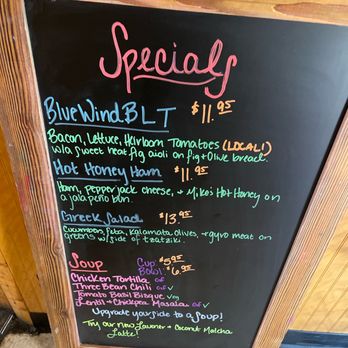 Specials
Blue Wind BLT $11.95
Bacon, Lettuce, Heirloom Tomatoes (LOCAL!)
w/a sweet heat fig aioli on fig + Olive bread.
Hot Honey Ham $11.95
Ham, pepperjack cheese, + Mike's Hot Honey on
a jalapeño bun.
Greek Salad $13.95
Cucumbers, feta, Kalamata olives, + gyro meat on
greens w/ side of tzatziki.
Soup Cup: $5.95
Bowl: $6.95
Chicken Tortilla GF
Three Bean Chili GF V
Tomato Basil Bisque veg
Lentil + Chickpea Masala GF V
Upgrade your side to a soup!
Try our new Lavender + Coconut Matcha
Latte!